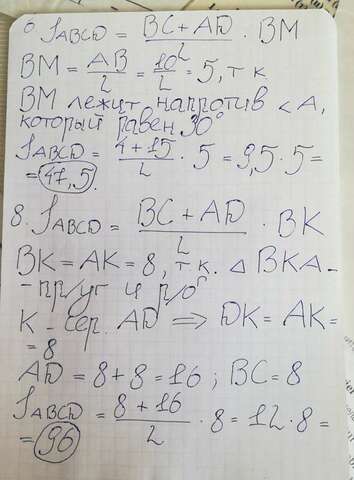 6 SABCD = BC + AD / 2 · BM
BM = AB / 2 = 10 / 2 = 5, т к
BM лежит напротив < A,
который равен 30°
SABCD = 4 + 15 / 2 · 5 = 9,5 · 5 =
= 47,5.
8. SABCD = BC + AD / 2 · BK
BK = AK = 8, т. к. △ BKA -
- пр/уг и р/б
K - сер. AD ⟹ DK = AK =
= 8
AD = 8 + 8 = 16 ; BC = 8
SABCD = 8 + 16 / 2 · 8 = 12 · 8 =
= 96